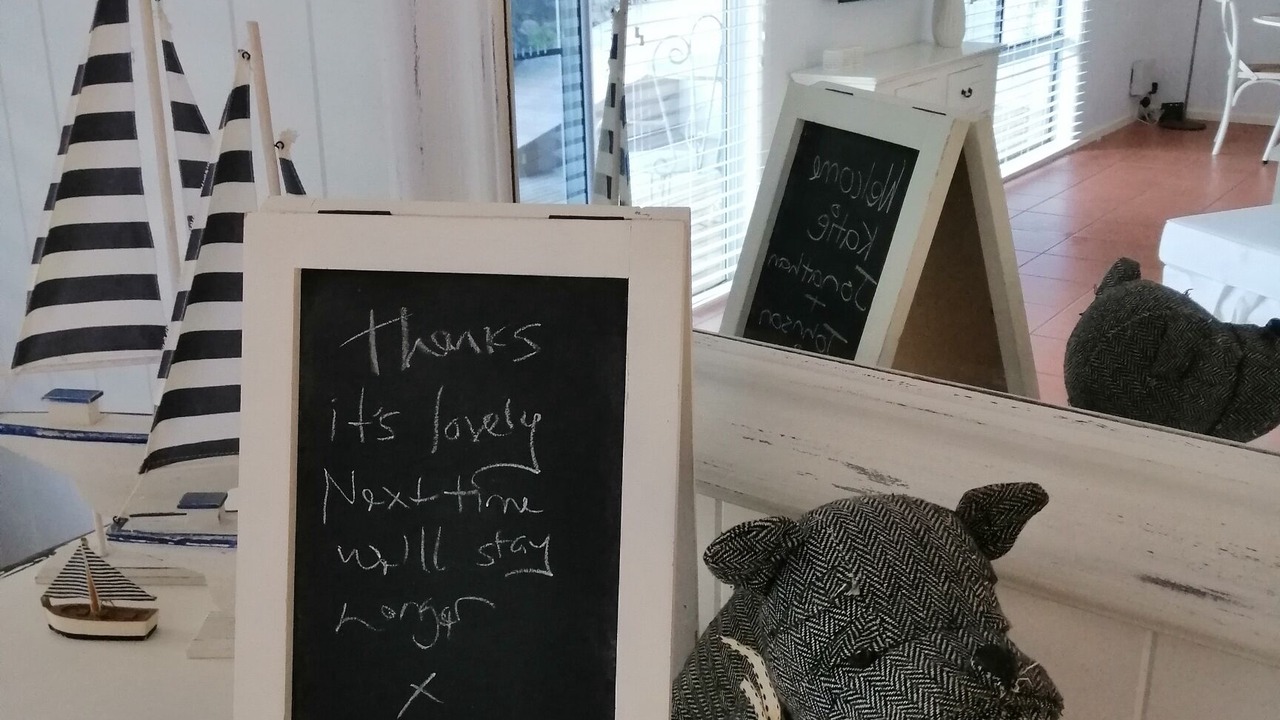 Thanks
it's lovely
Next time
will stay
Longer
x
Welcome
Katie
Jonathan
+
Johnson